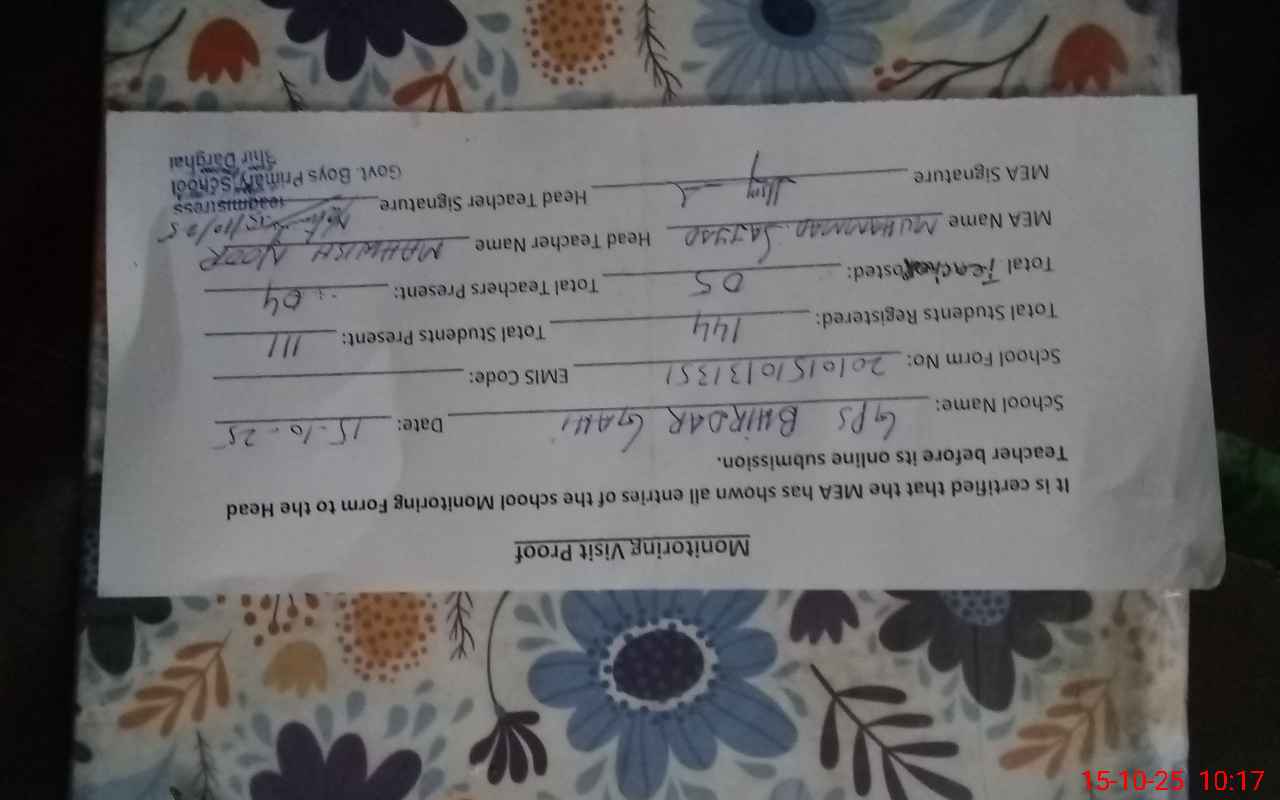 Monitoring Visit Proof
It is certified that the MEA has shown all entries of the school Monitoring Form to the Head
Teacher before its online submission.
School Name: GPS BHIRDAR GAHI Date: 15-10-25
School Form No: 20101510131351 EMIS Code:
Total Students Registered: 144 Total Students Present: 111
Total Teacher Posted: 05 Total Teachers Present: 04
MEA Name MUHAMMAD SAJJAD Head Teacher Name MAHWISH NOOR
MEA Signature Head Teacher Signature 15/10/25
Headmistress
Govt. Boys Primary School
Darghai
15-10-25 10:17